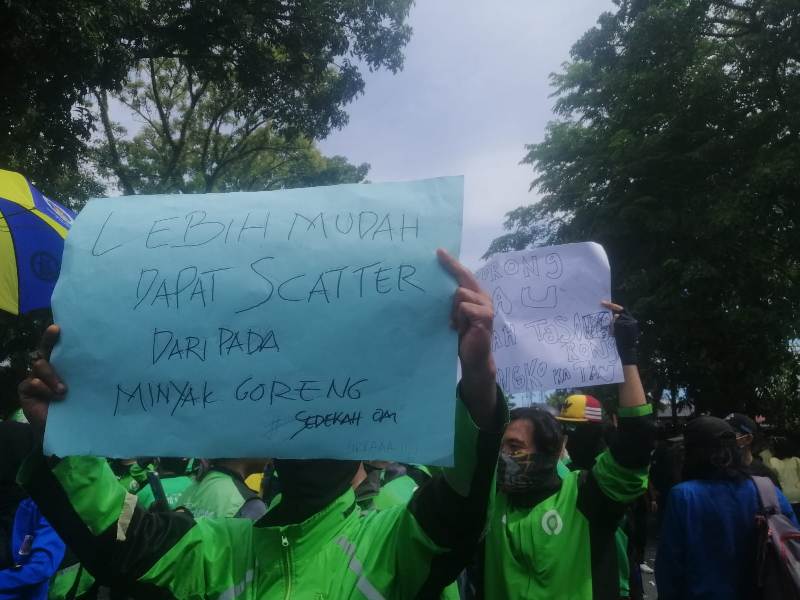 LEBIH MUDAH
DAPAT SCATTER
DARIPADA
MINYAK GORENG
SEDEKAH OM
RONG
AU
AH
RONG
NGKO